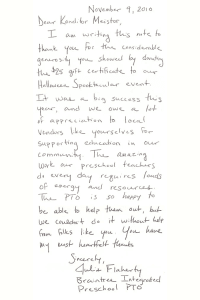 November 9, 2010
Dear Konditor Meister,
I am writing this note to
thank you for the considerable
generosity you showed by donating
the $25 gift certificate to our
Halloween Spooktacular event.
It was a big success this
year, and we owe a lot
of appreciation to local
vendors like yourselves for
supporting education in our
community. The amazing
work our preschool teachers
do every day requires loads
of energy and resources.
The PTO is so happy to
be able to help them out, but
we couldn't do it without help
from folks like you. You have
my most heartfelt thanks
Sincerely,
Julie Flaherty
Braintree Integrated
Preschool PTO